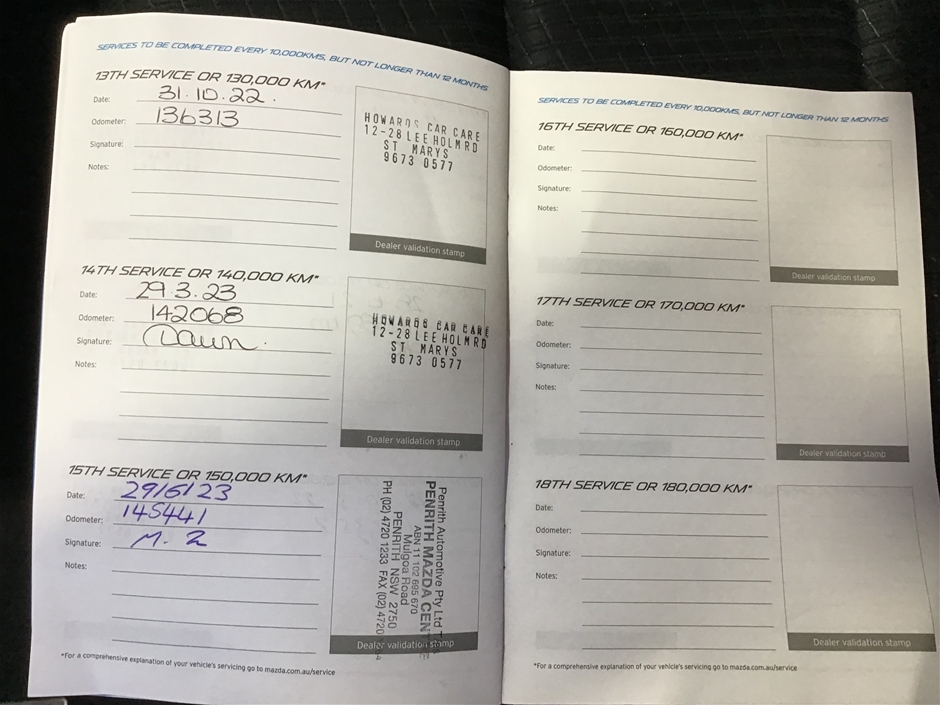 SERVICES TO BE COMPLETED EVERY 10,000KMS, BUT NOT LONGER THAN 12 MONTHS
13TH SERVICE OR 130,000 KM*
Date: 31.10.22.
Odometer: 136313
Signature:
Notes:
HOWARDS CAR CARE
12-28 LEE HOLM RD
ST MARYS
9673 0577
Dealer validation stamp
14TH SERVICE OR 140,000 KM*
Date: 29.3.23
Odometer: 142068
Signature: Dawn.
Notes:
HOWARDS CAR CARE
12-28 LEE HOLM RD
ST MARYS
9673 0577
Dealer validation stamp
15TH SERVICE OR 150,000 KM*
Date: 29/6/23
Odometer: 145441
Signature: M. 2
Notes:
Penrith Automotive Pty Ltd
PENRITH MAZDA CEN
ABN 11 102 695 670
Mulgoa Road
PENRITH NSW 2750
PH (02) 4720 1233 FAX (02) 4720
Dealer validation stamp
*For a comprehensive explanation of your vehicle's servicing go to mazda.com.au/service
SERVICES TO BE COMPLETED EVERY 10,000KMS, BUT NOT LONGER THAN 12 MONTHS
16TH SERVICE OR 160,000 KM*
Date:
Odometer:
Signature:
Notes:
Dealer validation stamp
17TH SERVICE OR 170,000 KM*
Date:
Odometer:
Signature:
Notes:
Dealer validation stamp
18TH SERVICE OR 180,000 KM*
Date:
Odometer:
Signature:
Notes:
Dealer validation stamp
*For a comprehensive explanation of your vehicle's servicing go to mazda.com.au/service